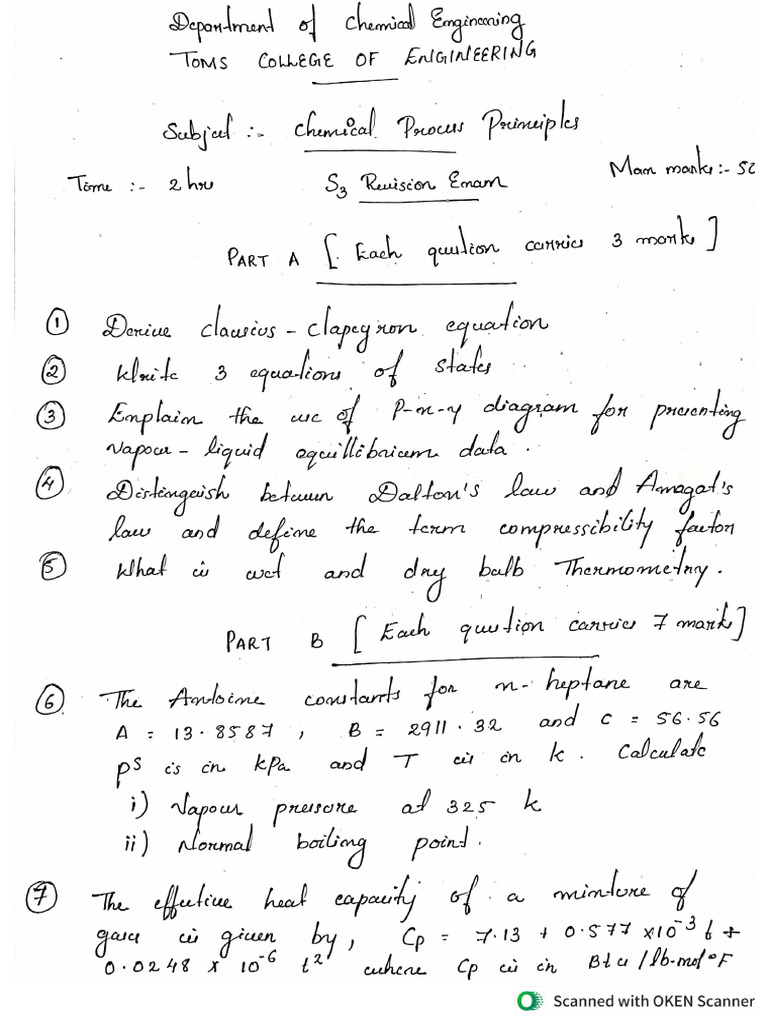 Department of Chemical Engineering
TOMS COLLEGE OF ENGINEERING
Subject :- Chemical Process Principles
Time :- 2 hrs S3 Revision Exam Max marks :- 50
PART A [ Each question carries 3 marks ]
① Derive Clausius - Clapeyron equation
② Write 3 equations of states
③ Explain the use of P-x-y diagram for presenting
vapour - liquid equillibrium data .
④ Distinguish between Dalton's law and Amagat's
law and define the term compressibility factor
⑤ What is wet and dry bulb Thermometry .
PART B [ Each question carries 7 mark ]
⑥ The Antoine constants for n- heptane are
A = 13.8587 , B = 2911.32 and C = 56.56
pˢ is in kPa and T is in k . Calculate
i) Vapour pressure at 325 k
ii) Normal boiling point .
⑦ The effective heat capacity of a mixture of
gases is given by, Cp = 7.13 + 0.577 x10⁻³ t +
0.0248 x 10⁻⁶ t² where Cp is in Btu /lb-mol°F
Scanned with OKEN Scanner